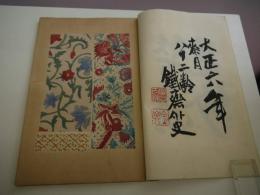 大正六年
春月
八十二齢
鐵齋外史